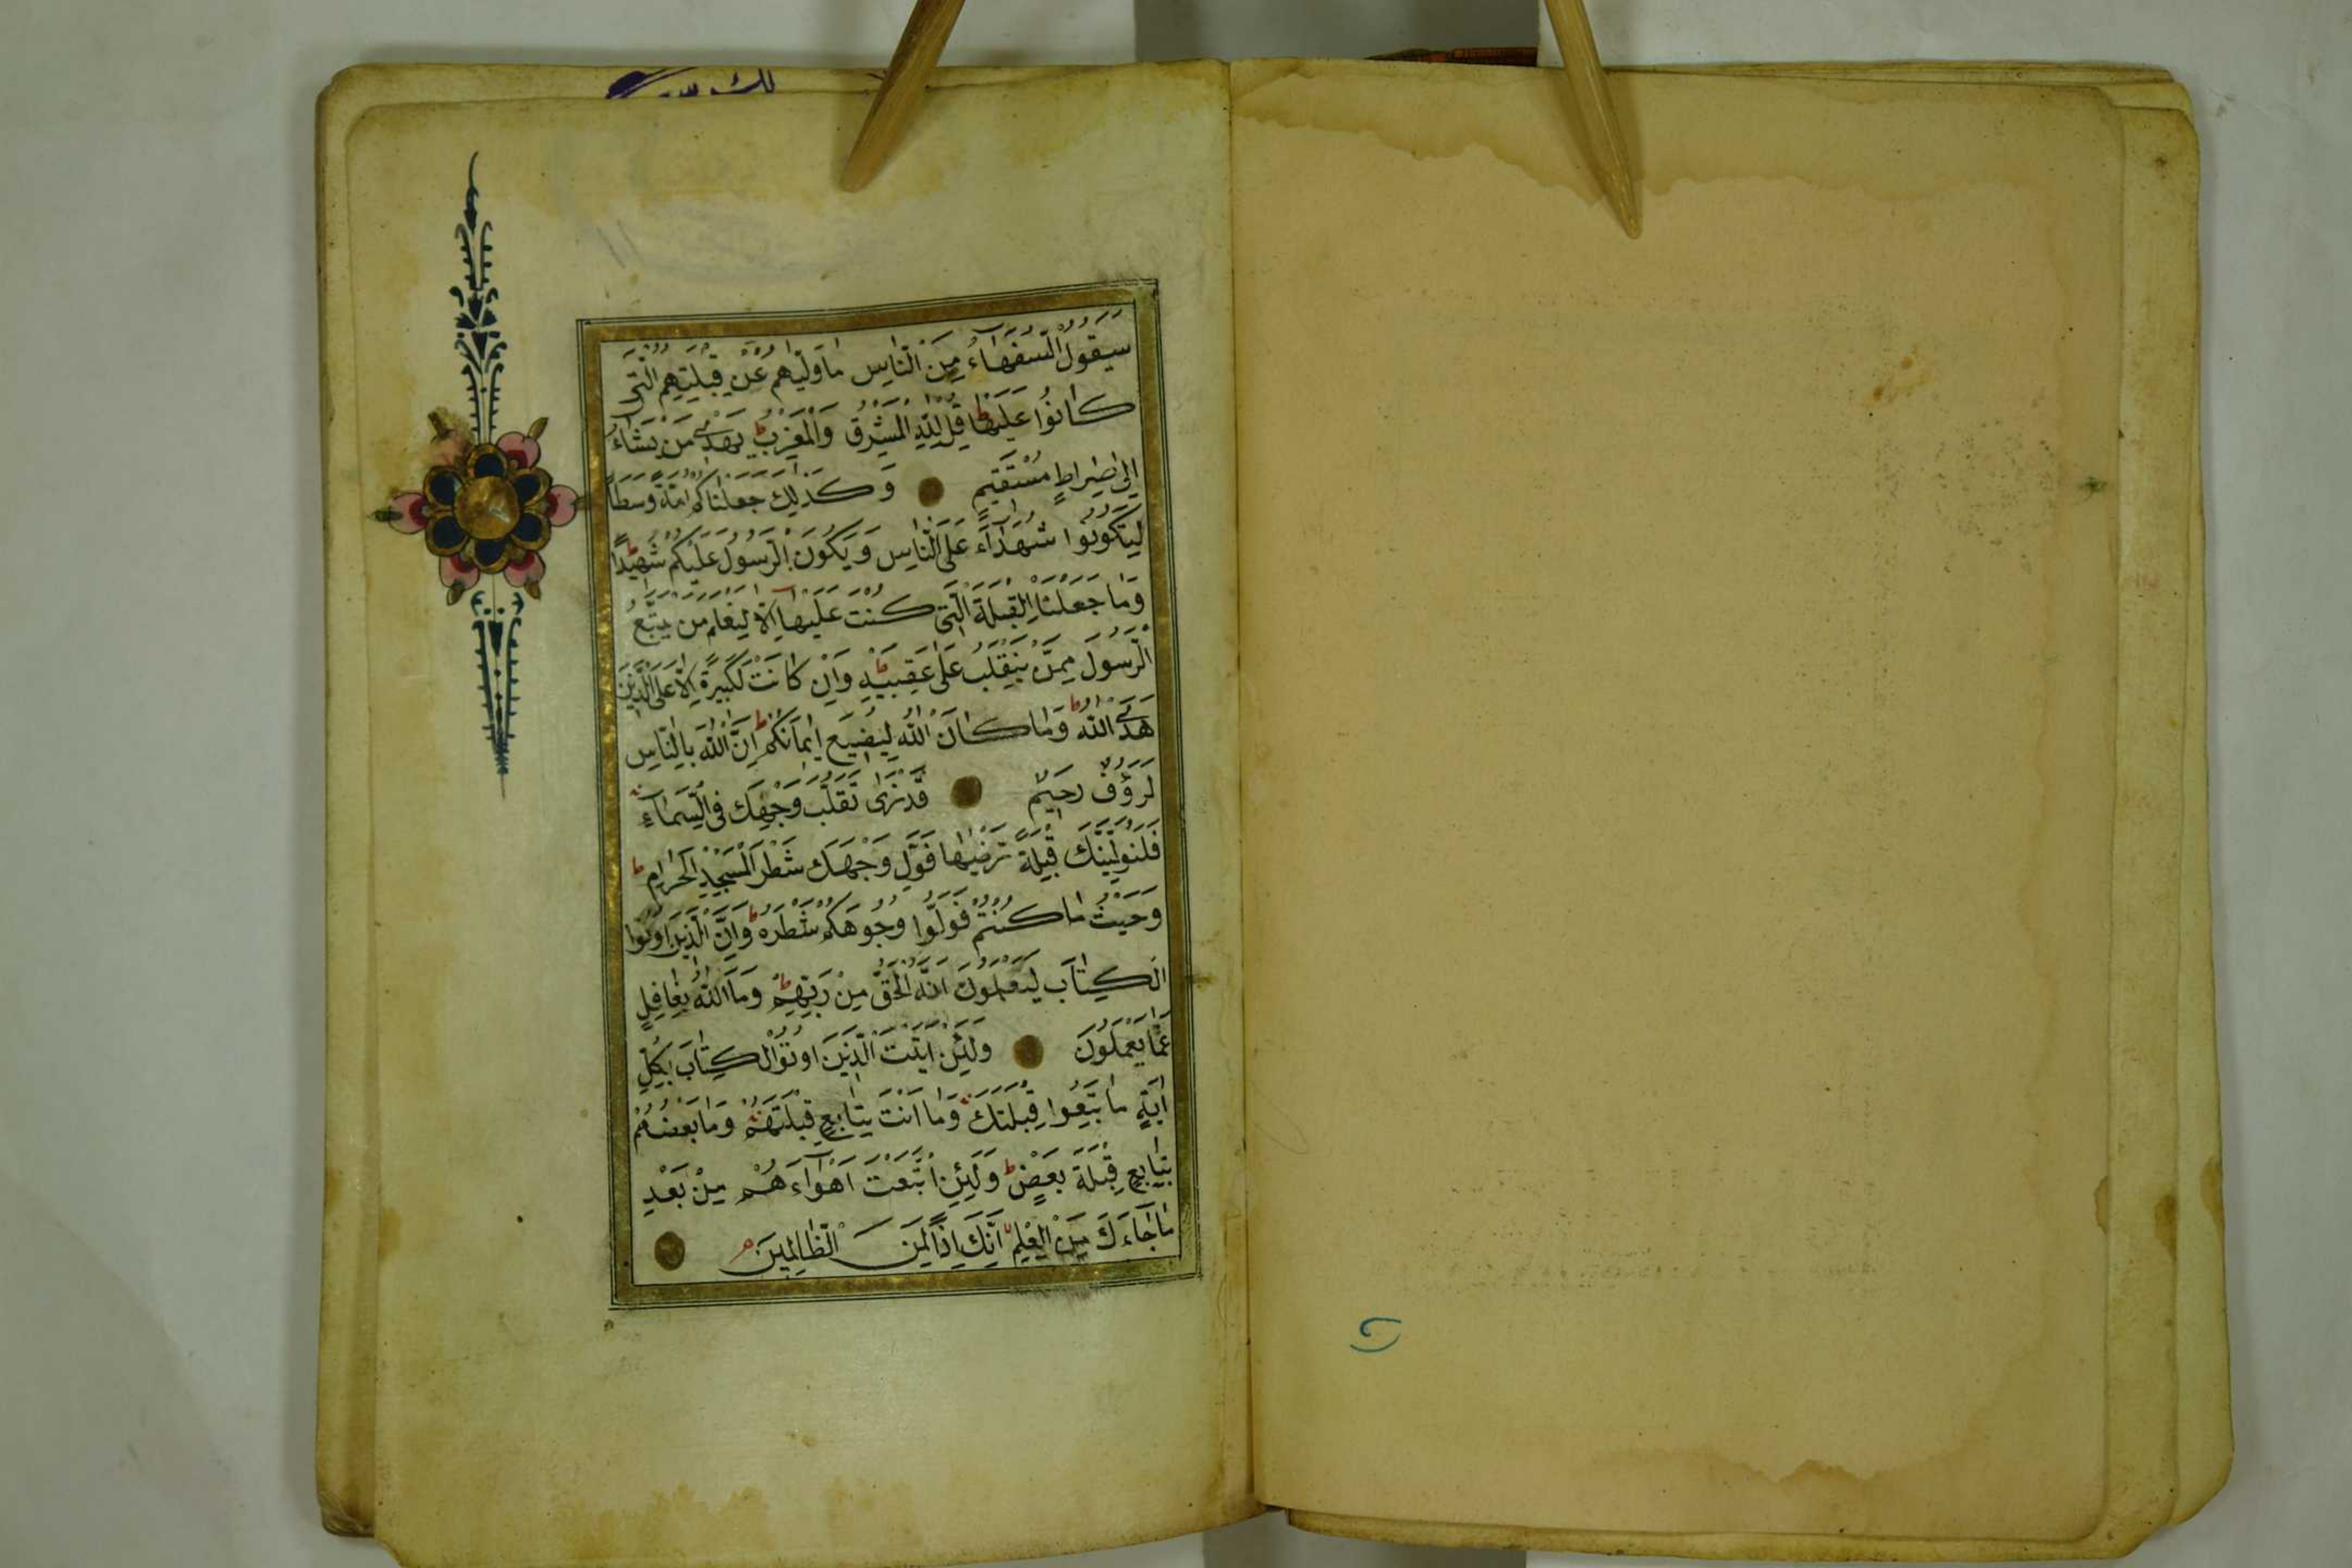 سَيَقُولُ السُّفَهَاءُ مِنَ النَّاسِ مَا وَلّٰيهُمْ عَنْ قِبْلَتِهِمُ الَّتى
كَانُوا عَلَيْهَا ط قُلْ لِلّٰهِ الْمَشْرِقُ وَالْمَغْرِبُ ط يَهْدِى مَنْ يَشَاءُ
اِلٰى صِرَاطٍ مُسْتَقِيمٍ وَكَذٰلِكَ جَعَلْنَاكُمْ اُمَّةً وَسَطًا
لِتَكُونُوا شُهَدَاءَ عَلَى النَّاسِ وَيَكُونَ الرَّسُولُ عَلَيْكُمْ شَهِيدًا ط
وَمَا جَعَلْنَا الْقِبْلَةَ الَّتِى كُنْتَ عَلَيْهَا اِلَّا لِنَعْلَمَ مَنْ يَتَّبِعُ
الرَّسُولَ مِمَّنْ يَنْقَلِبُ عَلٰى عَقِبَيْهِ ط وَاِنْ كَانَتْ لَكَبِيرَةً اِلَّا عَلَى الَّذِينَ
هَدَى اللّٰهُ ط وَمَا كَانَ اللّٰهُ لِيُضِيعَ اِيمَانَكُمْ ط اِنَّ اللّٰهَ بِالنَّاسِ
لَرَؤُفٌ رَحِيمٌ قَدْ نَرٰى تَقَلُّبَ وَجْهِكَ فِى السَّمَاءِ
فَلَنُوَلِّيَنَّكَ قِبْلَةً تَرْضٰيهَا فَوَلِّ وَجْهَكَ شَطْرَ الْمَسْجِدِ الْحَرَامِ ط
وَحَيْثُ مَا كُنْتُمْ فَوَلُّوا وُجُوهَكُمْ شَطْرَهُ ط وَاِنَّ الَّذِينَ اُوتُوا
الْكِتَابَ لَيَعْلَمُونَ اَنَّهُ الْحَقُّ مِنْ رَبِّهِمْ ط وَمَا اللّٰهُ بِغَافِلٍ
عَمَّا يَعْمَلُونَ وَلَئِنْ اَتَيْتَ الَّذِينَ اُوتُوا الْكِتَابَ بِكُلِّ
اٰيَةٍ مَا تَبِعُوا قِبْلَتَكَ وَمَا اَنْتَ بِتَابِعٍ قِبْلَتَهُمْ وَمَا بَعْضُهُمْ
بِتَابِعٍ قِبْلَةَ بَعْضٍ ط وَلَئِنِ اتَّبَعْتَ اَهْوَاءَهُمْ مِنْ بَعْدِ
مَا جَاءَكَ مِنَ الْعِلْمِ اِنَّكَ اِذًا لَمِنَ الظَّالِمِينَ م